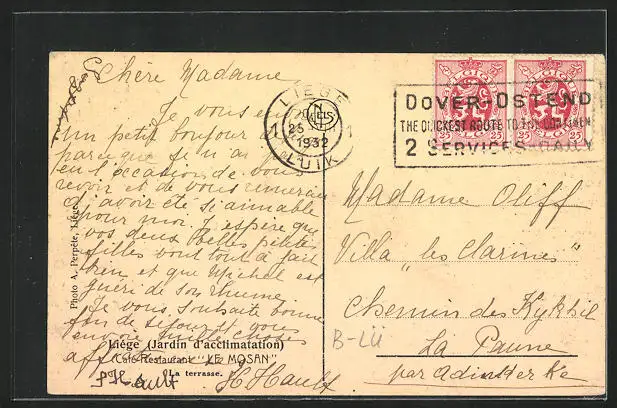 Chère Madame
Je vous en
un petit bonjour
parce que je n'ai
eu l'occasion de vous
revoir et de vous remercier
d'avoir été si aimable
pour moi. J'espère que
vos deux belles petites
filles vont tout à fait
bien et que Michel est
guéri de son rhume.
Je vous souhaite bonne
fin de séjour et vous
envoie
affect
H Hault
Photo A. Perpète, Liége
Liége (Jardin d'acclimatation)
Café-Restaurant "LE MOSAN"
La terrasse.
LIEGE
1 1
23
1932
LUIK
BELGIQUE
25 25
DOVER-OSTEND
THE QUICKEST ROUTE TO THE CONTINENT
2 SERVICES DAILY
Madame Oliff
Villa "les Clarines"
Chemin des Kykhil
La Panne
par Adinkerke
B-Lü